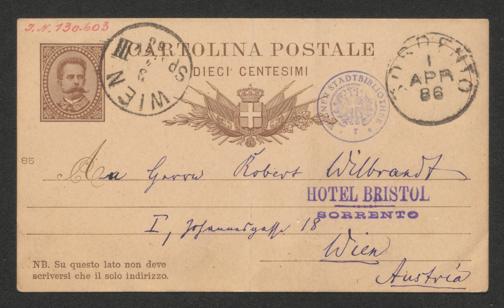 J.N. 130.603
CARTOLINA POSTALE
DIECI CENTESIMI
WIEN III
WIENER STADTBIBLIOTHEK
SORRENTO
1
APR
86
85
An Herrn Robert Wilbrandt
HOTEL BRISTOL
SORRENTO
I, Johannesgasse 18
Wien
Austria
NB. Su questo lato non deve
scriversi che il solo indirizzo.